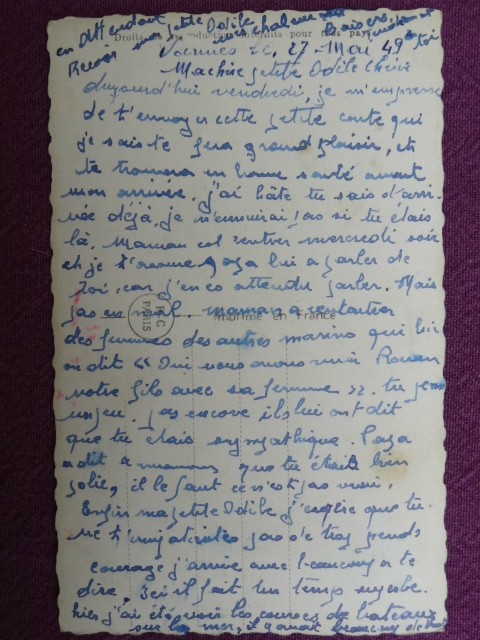 en attendant
Reçois ma petite Odile
Droits de reproduction pour tous pays
Vannes le, 27 Mai 49
Ma chère petite Odile Chérie
Aujourd'hui vendredi, je m'empresse
de t'envoyer cette petite carte qui
je sais te fera grand plaisir, et
te trouvera en bonne santé avant
mon arrivée. j'ai hâte tu sais d'arri-
vée déjà, je m'ennuirai pas si tu étais
là. Maman est rentrer mercredi soir
et je t'assure papa lui a parler de
toi, car j'en es attendu parler. Mais
pas en mal. maman a rencontrer
Imprimé en France
PARIS
des femmes des autres marins qui lui
on dit "Oui nous avons vu Ronan
votre fils avec sa femme". tu
pas encore ils lui ont dit
que tu étais sympathique. Papa
a dit a maman que tu était bien
jolie, il le faut ce n'est pas vrai.
Enfin ma petite Odile j'espère que tu
ne t'ennuis pas de trop prends
courage j'arrive avec beaucoup a te
dire. Ici il fait un temps superbe.
hier j'ai été voir les courses de bateaux
sur la mer, il y avait beaucoup de